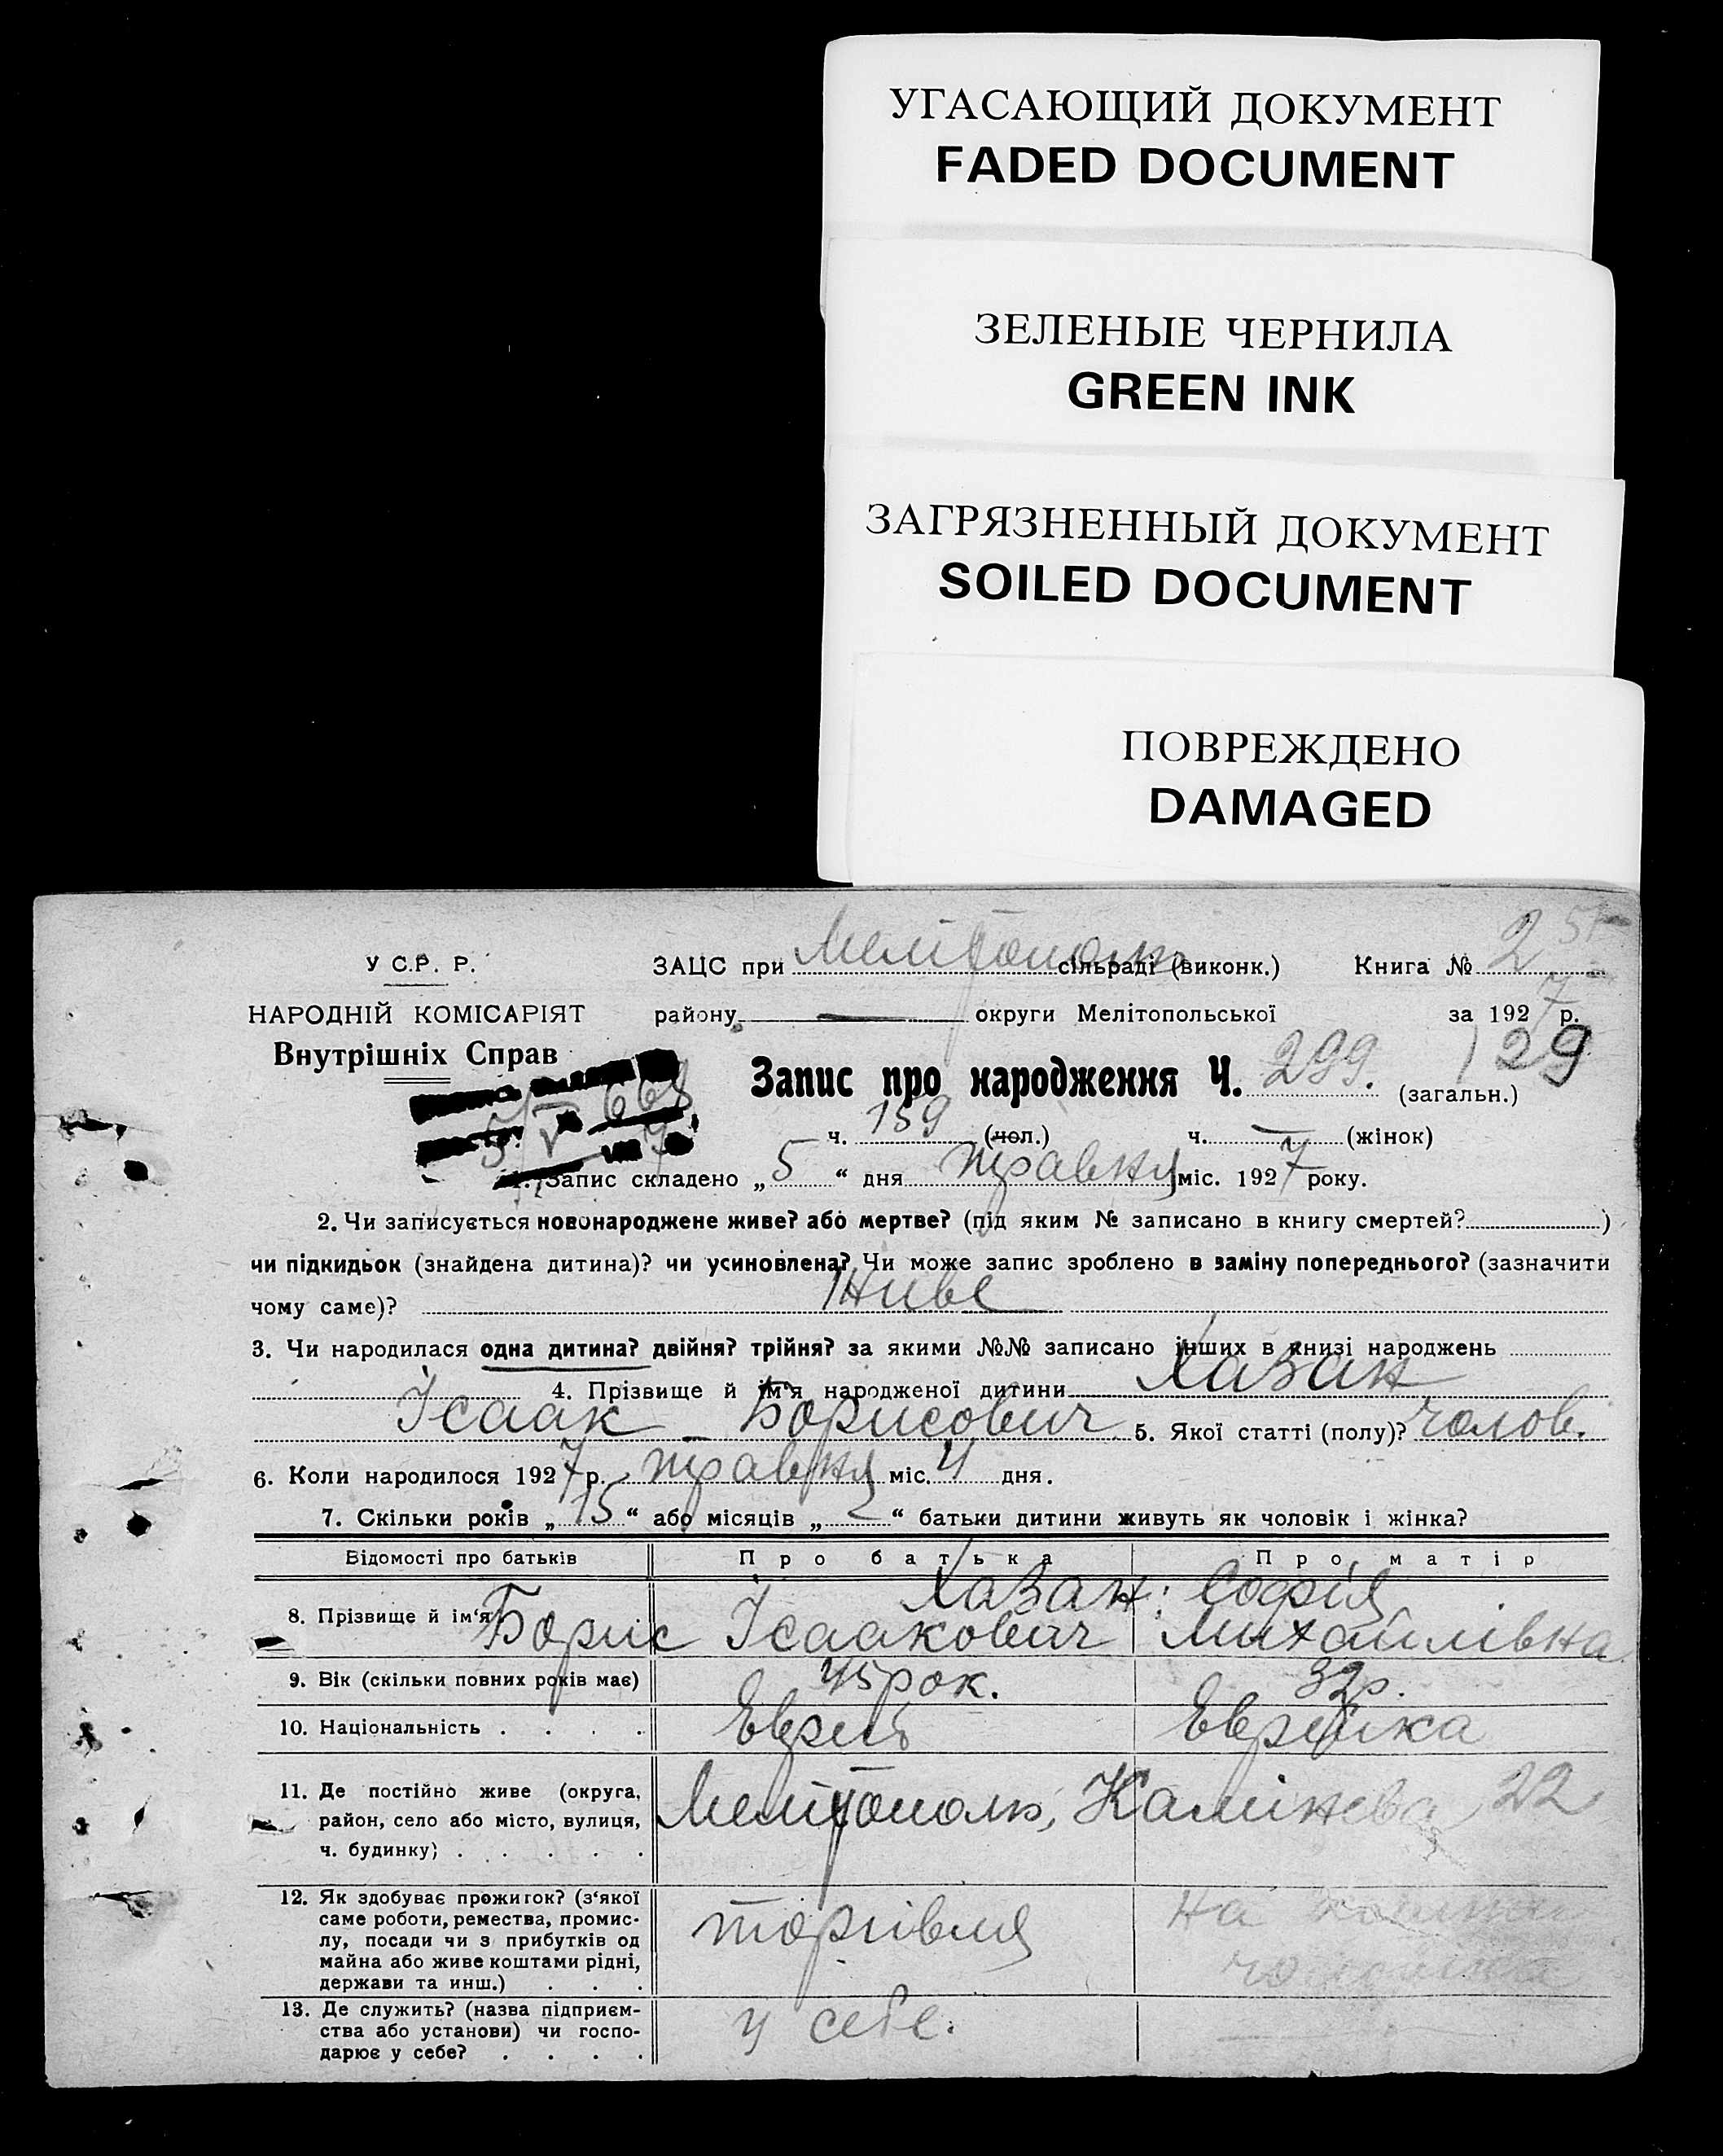 УГАСАЮЩИЙ ДОКУМЕНТ
FADED DOCUMENT
ЗЕЛЕНЫЕ ЧЕРНИЛА
GREEN INK
ЗАГРЯЗНЕННЫЙ ДОКУМЕНТ
SOILED DOCUMENT
ПОВРЕЖДЕНО
DAMAGED
У С.Р. Р. ЗАЦС при Мелітополь сільраді (виконк.) Книга № 2
НАРОДНІЙ КОМІСАРІЯТ району — округи Мелітопольської за 1927 р.
Внутрішніх Справ
129
Запис про народження Ч. 299. (загальн.)
668
5/V 7
ч. 159 (чол.) ч. — (жінок)
1. Запис складено „5“ дня травня міс. 1927 року.
2. Чи записується новонароджене живе? або мертве? (під яким № записано в книгу смертей? )
чи підкидьок (знайдена дитина)? чи усиновлена? Чи може запис зроблено в заміну попереднього? (зазначити
чому саме)? Живе
3. Чи народилася одна дитина? двійня? трійня? за якими №№ записано інших в книзі народжень
4. Прізвище й ім'я народженої дитини Хазан
Ісаак - Борисович 5. Якої статті (полу)? чолов.
6. Коли народилося 1927 р. травня міс. 4 дня.
7. Скільки років „15“ або місяців „ “ батьки дитини живуть як чоловік і жінка?
Відомості про батьків Про батька Про матір
8. Прізвище й ім'я Хазан: Софія
Борис Ісаакович Михайлівна
9. Вік (скільки повних років має) 45 рок. 32 р.
10. Національність . . . . Еврей Еврейка
11. Де постійно живе (округа,
район, село або місто, вулиця,
ч. будинку) . . . . . Мелітополь, Калінева 22
12. Як здобуває прожиток? (з'якої
саме роботи, ремества, промис-
лу, посади чи з прибутків од
майна або живе коштами рідні,
держави та инш.) . . . торгівля на
13. Де служить? (назва підприєм-
ства або установи) чи госпо-
дарює у себе? . . . . у себе.